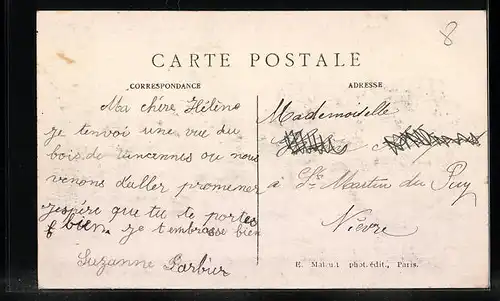 8
CARTE POSTALE
CORRESPONDANCE
Ma chère Hélène
je tenvoi une vue du
bois de vincennes ou nous
venons d'aller promener
jespère que tu te portes
bien je tembrasse bien
Suzanne
ADRESSE
Mademoiselle
à St Martin du Puy
Nièvre
E. phot. édit., Paris.